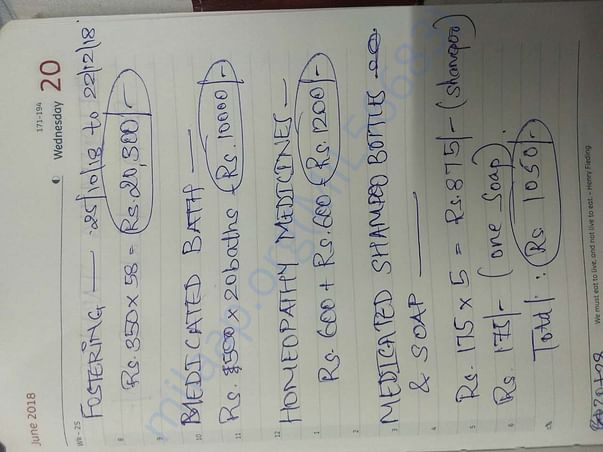 June 2018
171-194
Wednesday 20
Wk - 25
FOSTERING — 25/10/18 to 22/12/18.
8
Rs. 350 x 58 = Rs. 20,300/-
9
MEDICATED BATH —
10
Rs. 500 x 20 baths = Rs. 10000/-
11
HOMEOPATHY MEDICINES —
12
Rs. 600 + Rs. 600 = Rs. 1200/-
1
2
MEDICATED SHAMPOO BOTTLES
3
& SOAP —
4
Rs. 175 x 5 = Rs. 875/- (shampoo)
5
Rs. 175/- (one soap).
6
Total : Rs 1050/-
We must eat to live, and not live to eat. - Henry Fielding
milaap.org